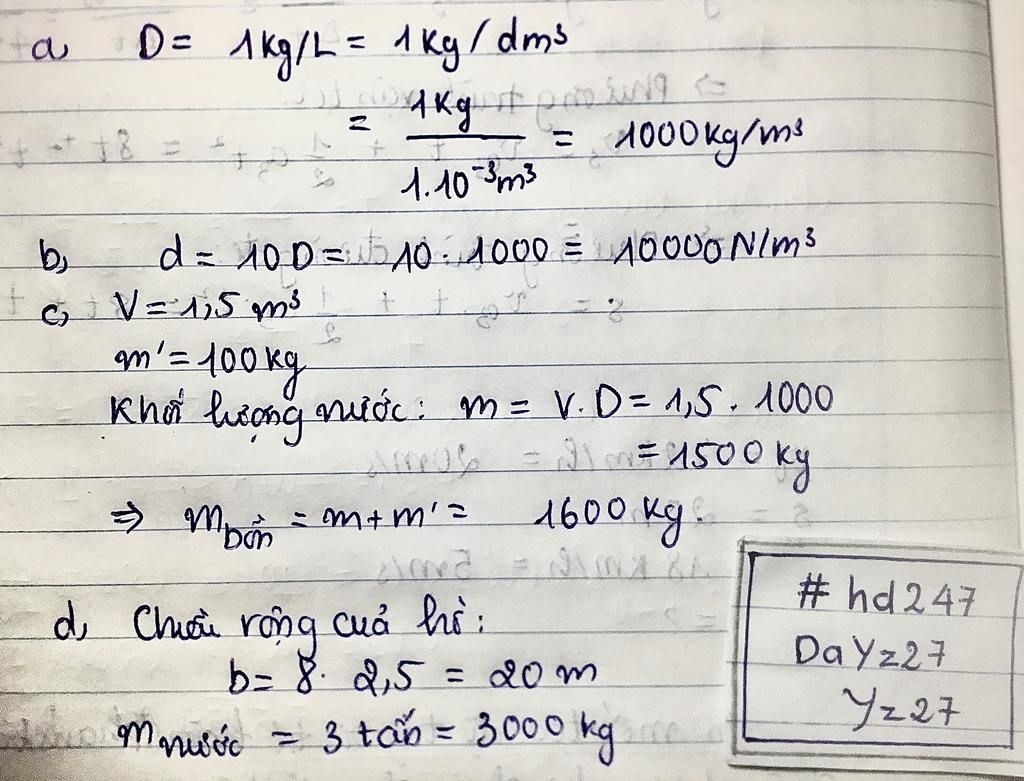 a, D = 1kg/L = 1kg/dm³
= 1kg / 1.10⁻³m³ = 1000kg/m³
b, d = 10D = 10 . 1000 = 10000N/m³
c, V = 1,5 m³
m' = 100kg
Khối lượng nước: m = V.D = 1,5 . 1000
= 1500 kg
⇒ m bồn = m + m' = 1600 kg.
d, Chiều rộng của hồ:
b = 8 . 2,5 = 20 m
m nước = 3 tấn = 3000 kg
# hd247
DaYz27
Yz27